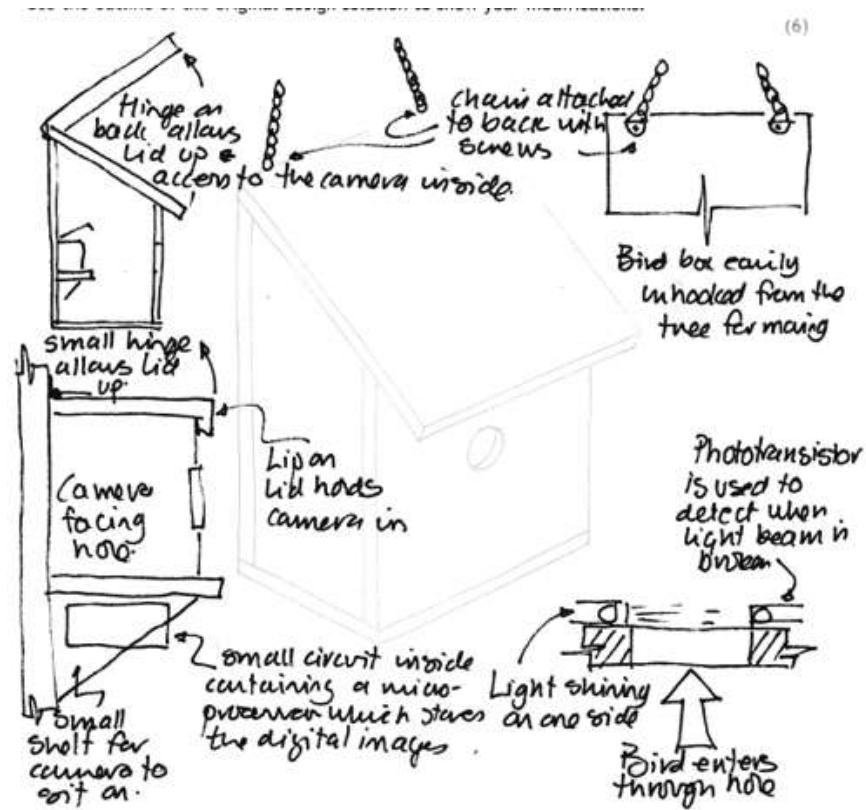 (6)
Hinge on
back allows
lid up &
access to the camera inside.
Chain attached
to back with
screws
Bird box easily
unhooked from the
tree for moving
small hinge
allows lid
up.
Lip on
lid holds
camera in
Camera
facing
hole.
Phototransistor
is used to
detect when
light beam is
broken
small circuit inside
containing a micro-
processor which stores
the digital images.
Light shining
on one side
Small
shelf for
camera to
sit on.
Bird enters
through hole